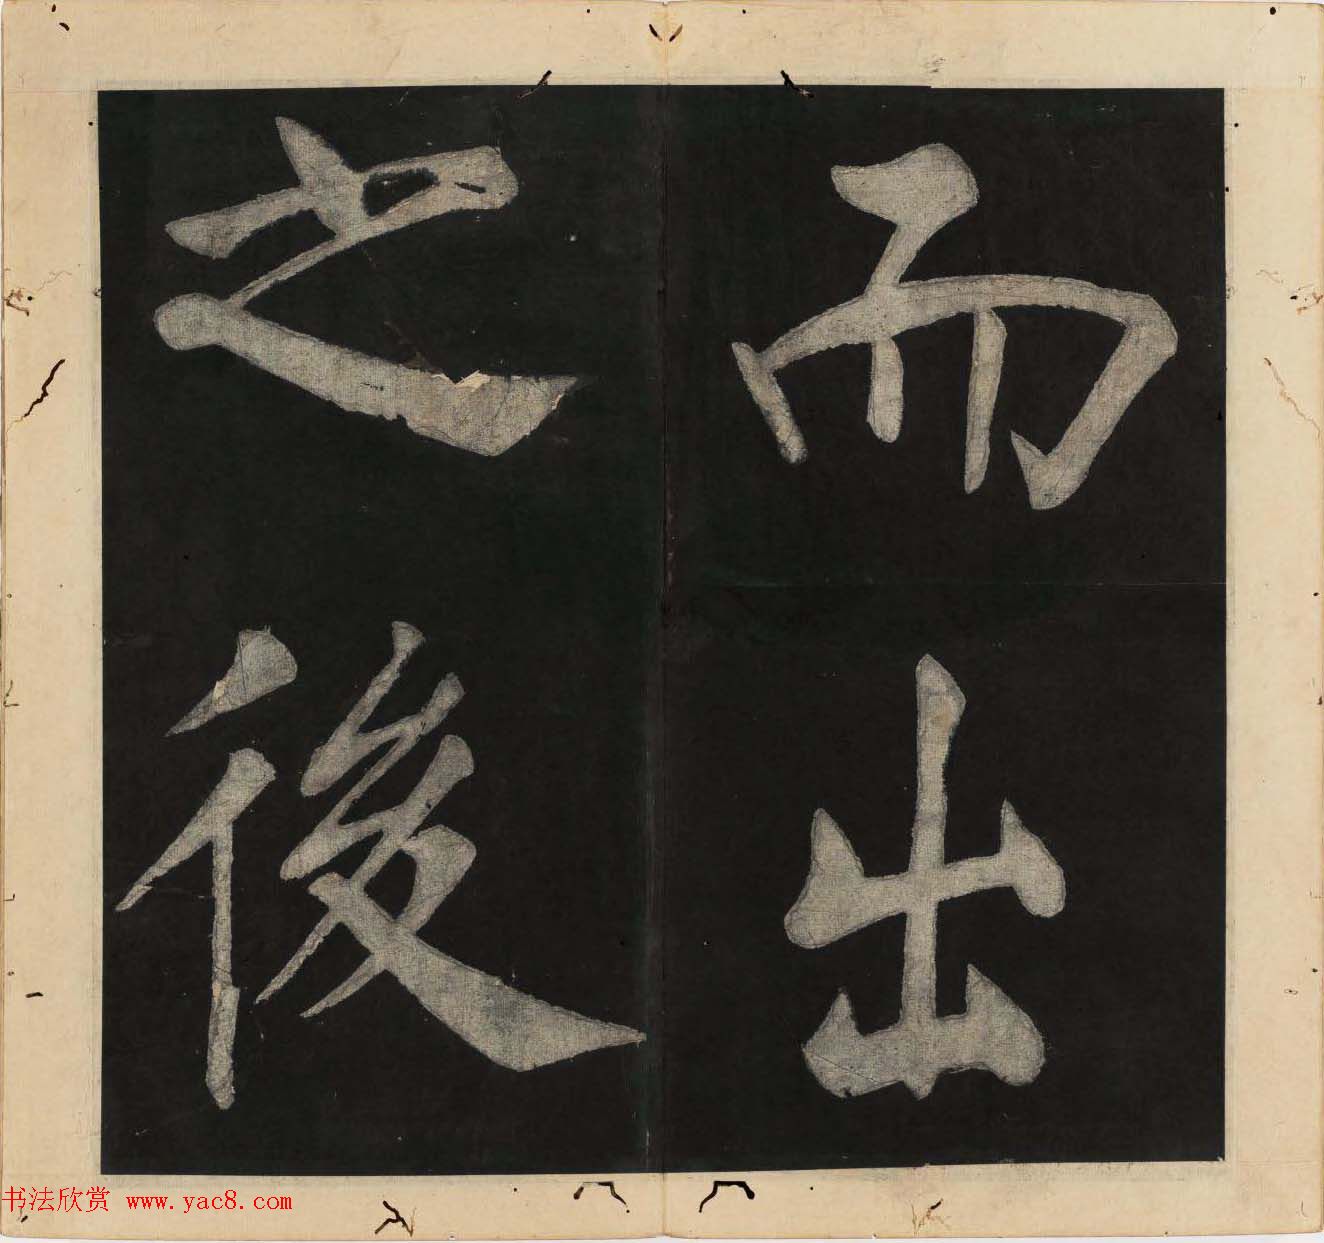 而出
之後
书法欣赏 www.yac8.com